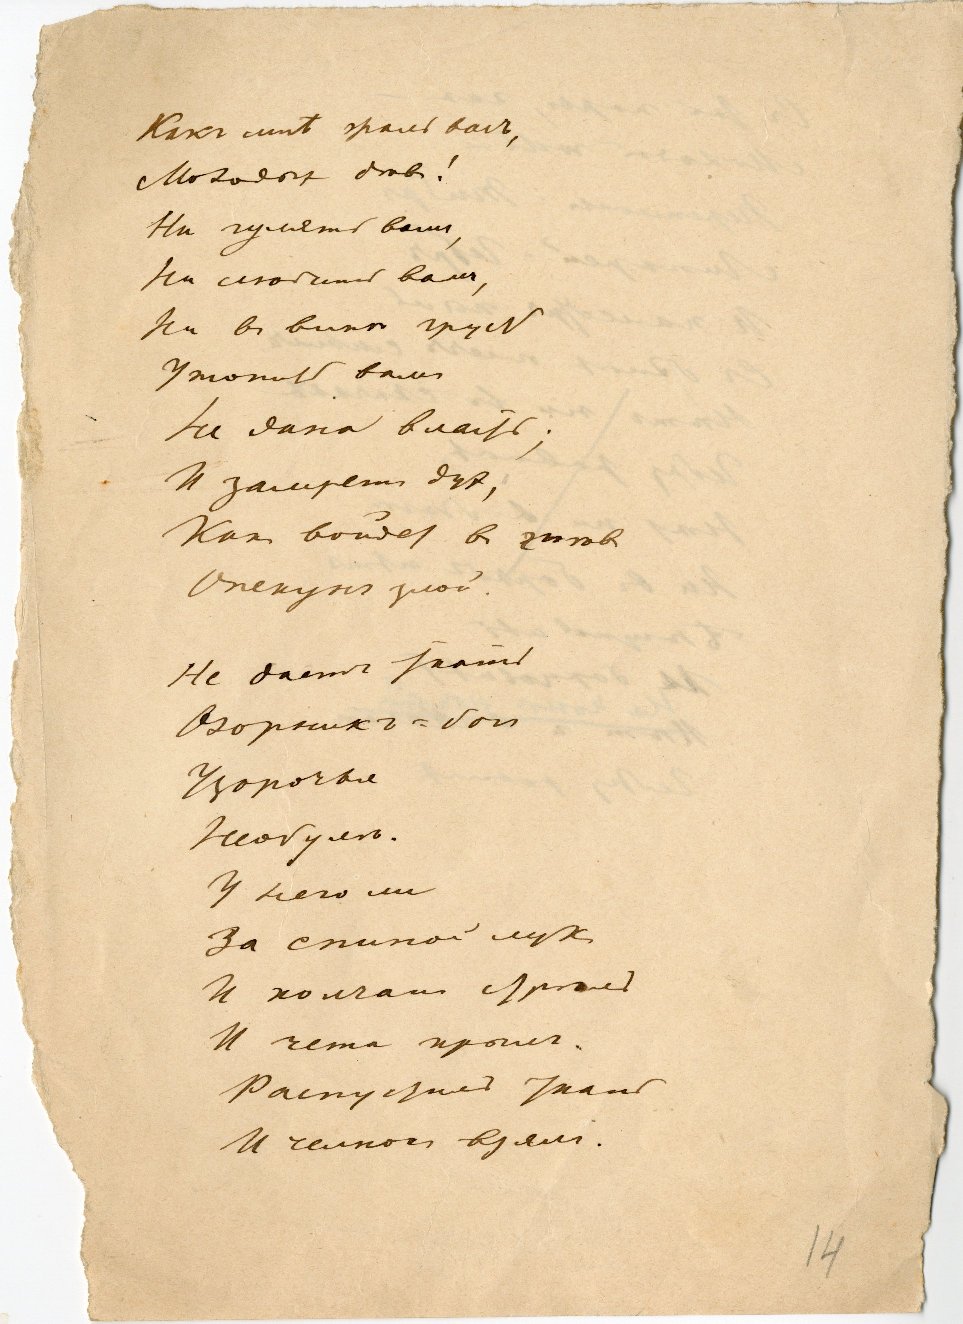 Какъ мнѣ жаль васъ,
Молодыхъ дѣвъ!
Ни гулять вамъ,
Ни любить вамъ,
Ни въ винѣ грусть
Утопить вамъ
Не дана власть;
И замретъ духъ,
Какъ войдетъ въ гнѣвъ
Опекунъ злой.
Не даетъ ткать
Озорникъ-богъ
Узорочья
Необулѣ.
У него ли
За спиной лукъ
И колчанъ стрѣлъ
И чета крылъ.
Распустилъ ткань
И челнокъ взялъ.
14